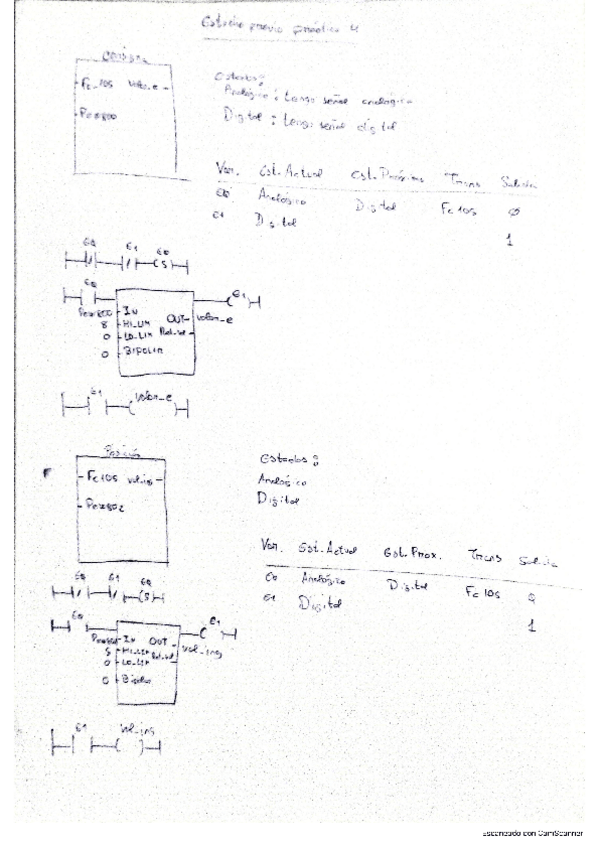 Estudio previo práctica 4
Consigna
Fc_10s Valor_e
Pew800
Estados:
Analógico: tengo señal analógica
Digital: tengo señal digital
Var. Est. Actual Est. Próximo Trans Salida
E0 Analógico Digital Fc10s 0
E1 Digital
1
E0 E1 E0
(S)
E0
E1
Pew800 IN
8 HI_LIM OUT Valor_e
0 LO_LIM Ret_val
0 BIPOLAR
E1 Valor_e
Posición
Fc10s Val_ing
Pew802
Estados:
Analógico
Digital
Var. Est. Actual Est. Prox. Trans Salida
E0 Analógico Digital Fc10s 0
E1 Digital
1
E0 E1 E0
(S)
E0
E1
IN OUT val_ing
HI_LIM Ret_val
0 LO_LIM
0 Bipolar
E1 Val_ing
Escaneado con CamScanner